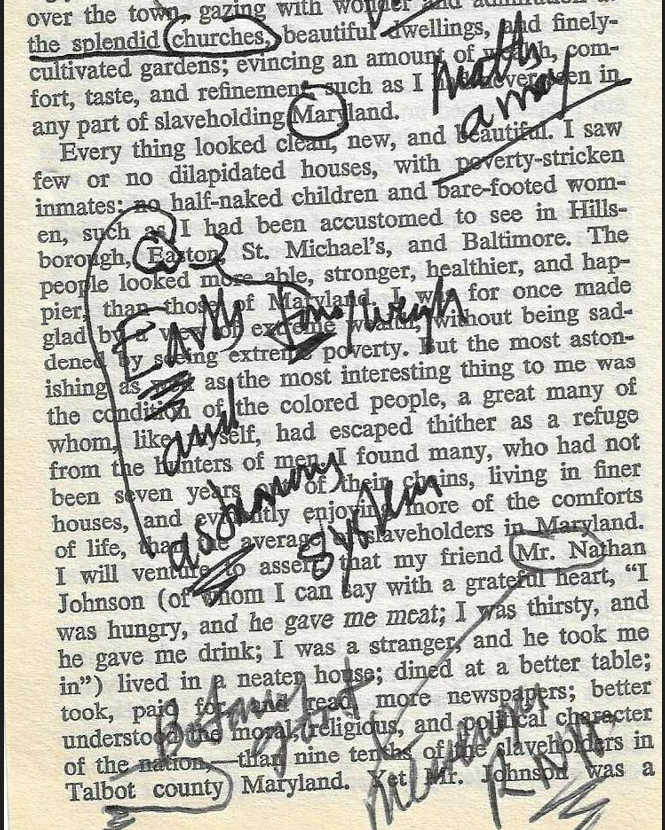 over the town, gazing with wonder and admiration at
the splendid churches, beautiful dwellings, and finely-
cultivated gardens; evincing an amount of wealth, com-
fort, taste, and refinement, such as I had never seen in
any part of slaveholding Maryland.
Every thing looked clean, new, and beautiful. I saw
few or no dilapidated houses, with poverty-stricken
inmates; no half-naked children and bare-footed wom-
en, such as I had been accustomed to see in Hills-
borough, Easton, St. Michael's, and Baltimore. The
people looked more able, stronger, healthier, and hap-
pier, than those of Maryland. I was for once made
glad by a view of extreme wealth, without being sad-
dened by seeing extreme poverty. But the most aston-
ishing as well as the most interesting thing to me was
the condition of the colored people, a great many of
whom, like myself, had escaped thither as a refuge
from the hunters of men. I found many, who had not
been seven years out of their chains, living in finer
houses, and evidently enjoying more of the comforts
of life, than the average of slaveholders in Maryland.
I will venture to assert that my friend Mr. Nathan
Johnson (of whom I can say with a grateful heart, "I
was hungry, and he gave me meat; I was thirsty, and
he gave me drink; I was a stranger, and he took me
in") lived in a neater house; dined at a better table;
took, paid for, and read, more newspapers; better
understood the moral, religious, and political character
of the nation,—than nine tenths of the slaveholders in
Talbot county Maryland. Yet Mr. Johnson was a
math
Earth
and
system